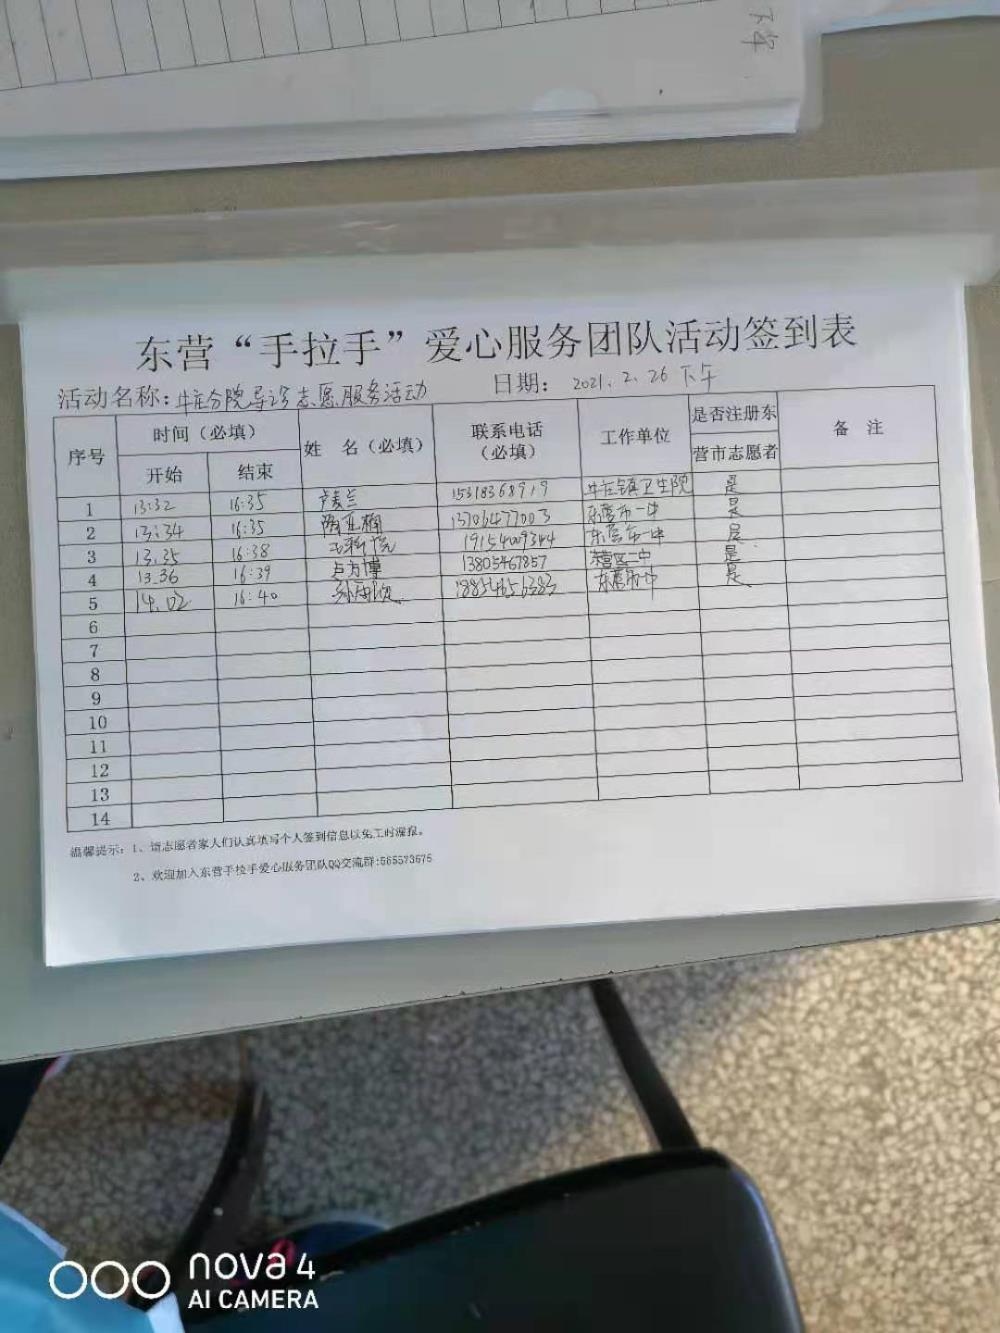 下午
东营“手拉手”爱心服务团队活动签到表
活动名称：牛庄分院导诊志愿服务活动 日期： 2021.2.26 下午
序号 时间（必填） 姓 名（必填） 联系电话（必填） 工作单位 是否注册东营市志愿者 备 注
开始 结束
1 13:32 16:35 15318368919 牛庄镇卫生院 是
2 13:34 16:35 13706477003 东营市一中 是
3 13.35 16:38 19154009344 东营市一中 是
4 13.36 16:39 13805467857 一中 是
5 14.02 16:40 18854656383 东营市一中 是
6
7
8
9
10
11
12
13
14
温馨提示：1、请志愿者家人们认真填写个人签到信息以免工时漏报。
2、欢迎加入东营手拉手爱心服务团队QQ交流群:565573675
nova 4
AI CAMERA